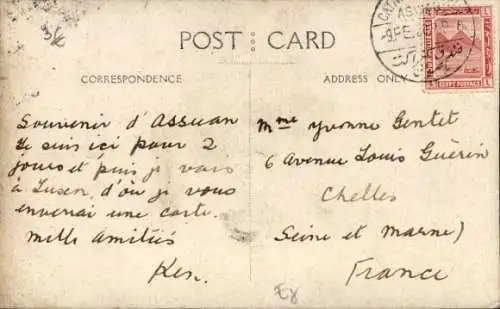 POST CARD
CORRESPONDENCE
ADDRESS ONLY
Souvenir d'Assuan
Je suis ici pour 2
jours et puis je vais
à Luxen d'où je vous
enverrai une carte.
Mille Amitiés
Ken.
Mme Yvonne Gentet
6 Avenue Louis Guérin
Chelles
Seine et Marne)
France
EGYPT POSTAGE